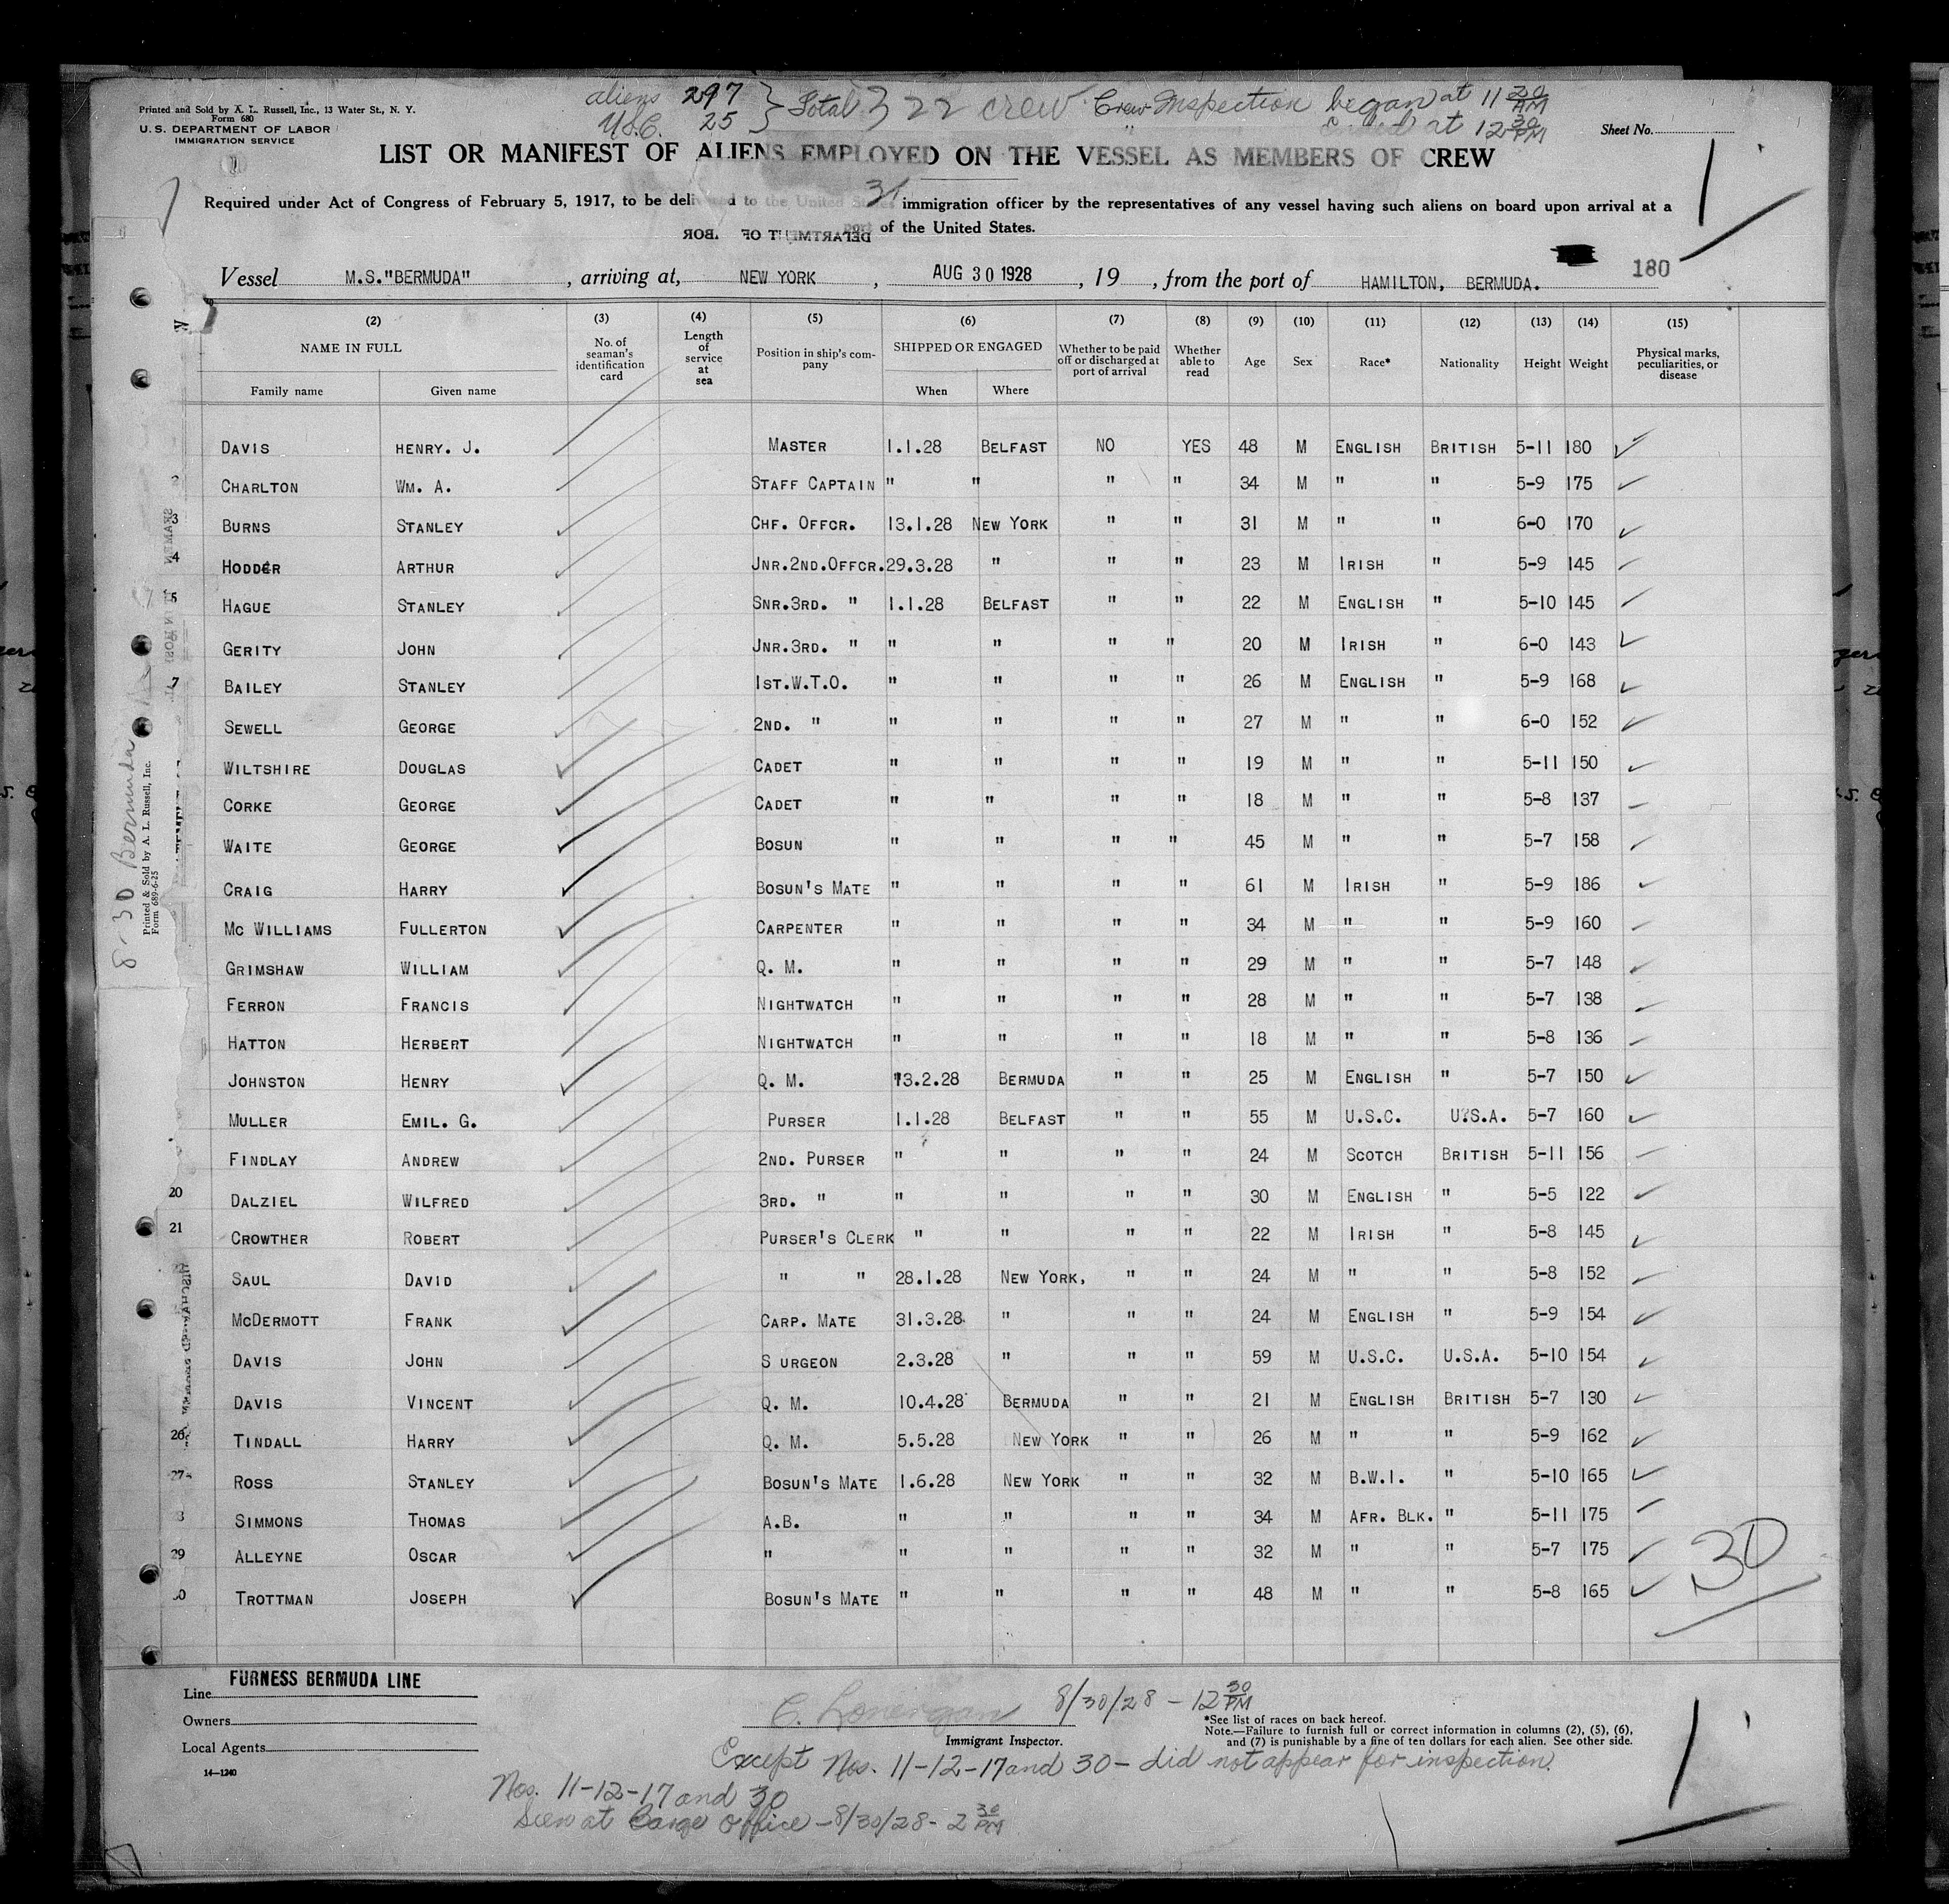 aliens 297 } Total 322 crew. Crew Inspection began at 11 20 AM
U.S.C. 25 " ended at 12 30 PM
Printed and Sold by A. L. Russell, Inc., 13 Water St., N. Y.
Form 680
U. S. DEPARTMENT OF LABOR
IMMIGRATION SERVICE
Sheet No.
1
LIST OR MANIFEST OF ALIENS EMPLOYED ON THE VESSEL AS MEMBERS OF CREW
Required under Act of Congress of February 5, 1917, to be delivered to the United States immigration officer by the representatives of any vessel having such aliens on board upon arrival at a
port of the United States.
Vessel M.S."BERMUDA" , arriving at, NEW YORK , AUG 30 1928 , 19 , from the port of HAMILTON, BERMUDA. 180
(2) (3) (4) (5) (6) (7) (8) (9) (10) (11) (12) (13) (14) (15)
NAME IN FULL No. of seaman's identification card Length of service at sea Position in ship's company SHIPPED OR ENGAGED Whether to be paid off or discharged at port of arrival Whether able to read Age Sex Race* Nationality Height Weight Physical marks, peculiarities, or disease
Family name Given name When Where
DAVIS HENRY. J. MASTER 1.1.28 BELFAST NO YES 48 M ENGLISH BRITISH 5-11 180
CHARLTON WM. A. STAFF CAPTAIN " " " " 34 M " " 5-9 175
3 BURNS STANLEY CHF. OFFCR. 13.1.28 NEW YORK " " 31 M " " 6-0 170
4 HODDER ARTHUR JNR.2ND.OFFCR. 29.3.28 " " " 23 M IRISH " 5-9 145
5 HAGUE STANLEY SNR.3RD. " 1.1.28 BELFAST " " 22 M ENGLISH " 5-10 145
GERITY JOHN JNR.3RD. " " " " " 20 M IRISH " 6-0 143
7 BAILEY STANLEY 1ST.W.T.O. " " " " 26 M ENGLISH " 5-9 168
SEWELL GEORGE 2ND. " " " " " 27 M " " 6-0 152
WILTSHIRE DOUGLAS CADET " " " " 19 M " " 5-11 150
CORKE GEORGE CADET " " " " 18 M " " 5-8 137
WAITE GEORGE BOSUN " " " " 45 M " " 5-7 158
CRAIG HARRY BOSUN'S MATE " " " " 61 M IRISH " 5-9 186
MC WILLIAMS FULLERTON CARPENTER " " " " 34 M " " 5-9 160
GRIMSHAW WILLIAM Q. M. " " " " 29 M " " 5-7 148
FERRON FRANCIS NIGHTWATCH " " " " 28 M " " 5-7 138
HATTON HERBERT NIGHTWATCH " " " " 18 M " " 5-8 136
JOHNSTON HENRY Q. M. 13.2.28 BERMUDA " " 25 M ENGLISH " 5-7 150
MULLER EMIL. G. PURSER 1.1.28 BELFAST " " 55 M U.S.C. U.S.A. 5-7 160
FINDLAY ANDREW 2ND. PURSER " " " " 24 M SCOTCH BRITISH 5-11 156
20 DALZIEL WILFRED 3RD. " " " " " 30 M ENGLISH " 5-5 122
21 CROWTHER ROBERT PURSER'S CLERK " " " " 22 M IRISH " 5-8 145
SAUL DAVID " " 28.1.28 NEW YORK, " " 24 M " " 5-8 152
MCDERMOTT FRANK CARP. MATE 31.3.28. " " " 24 M ENGLISH " 5-9 154
DAVIS JOHN S URGEON 2.3.28 " " " 59 M U.S.C. U.S.A. 5-10 154
DAVIS VINCENT Q. M. 10.4.28 BERMUDA " " 21 M ENGLISH BRITISH 5-7 130
26 TINDALL HARRY Q. M. 5.5.28 NEW YORK " " 26 M " " 5-9 162
27 ROSS STANLEY BOSUN'S MATE 1.6.28 NEW YORK " " 32 M B.W.I. " 5-10 165
8 SIMMONS THOMAS A.B. " " " " 34 M AFR. BLK. " 5-11 175
29 ALLEYNE OSCAR " " " " " 32 M " " 5-7 175
30 TROTTMAN JOSEPH BOSUN'S MATE " " " " 48 M " " 5-8 165
30
8-30 Bermuda
Printed & Sold by A. L. Russell, Inc.
Form 689-6-25
Line FURNESS BERMUDA LINE
Owners
Local Agents
14—1240
C. Lonergan 8/30/28 - 12 30 PM
Immigrant Inspector.
*See list of races on back hereof.
Note.—Failure to furnish full or correct information in columns (2), (5), (6),
and (7) is punishable by a fine of ten dollars for each alien. See other side.
Except Nos. 11-12-17 and 30 - did not appear for inspection.
Nos. 11-12-17 and 30
Seen at Barge Office - 8/30/28 - 2 30 PM
1